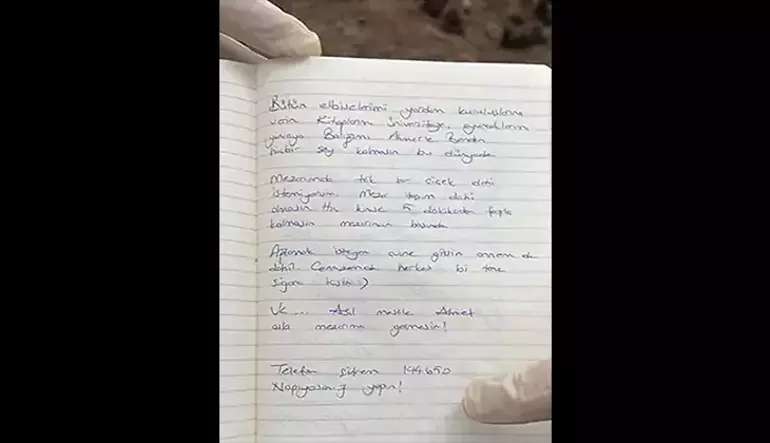 Bütün elbiselerimi yardım kuruluşlarına
verin Kitaplarım üniversiteye, oyuncaklarım
yuvaya Balığım Ahmet'e Benden
hiçbir şey kalmasın bu dünyada
Mezarımda tek bir çiçek dahi
istemiyorum. Mezar taşım dahi
olmasın Hiç kimse 5 dakikadan fazla
kalmasın mezarımın başında
Ağlamak isteyen evine gitsin annem de
dahil. Cenazemde herkes bi tane
sigara içsin :)
Ve... Asıl mesele Ahmet
asla mezarıma gelmesin!
Telefon şifrem 144650
Napıyosanız yapın!